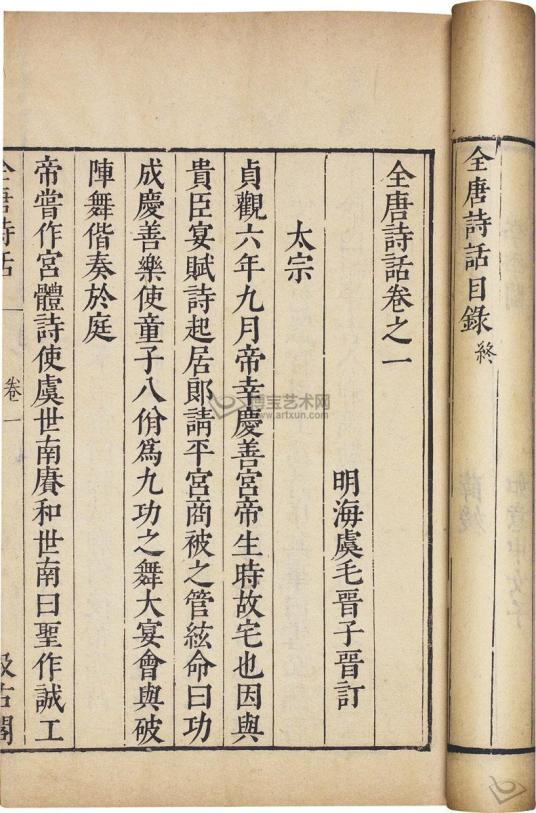 全唐詩話目錄終
全唐詩話卷之一
明海虞毛晉子晉訂
太宗
貞觀六年九月帝幸慶善宮帝生時故宅也因與
貴臣宴賦詩起居郎請平宮商被之管絃命曰功
成慶善樂使童子八佾爲九功之舞大宴會與破
陣舞偕奏於庭
帝嘗作宮體詩使虞世南賡和世南曰聖作誠工
全唐詩話
卷一
汲古閣
博宝艺术网
www.artxun.com